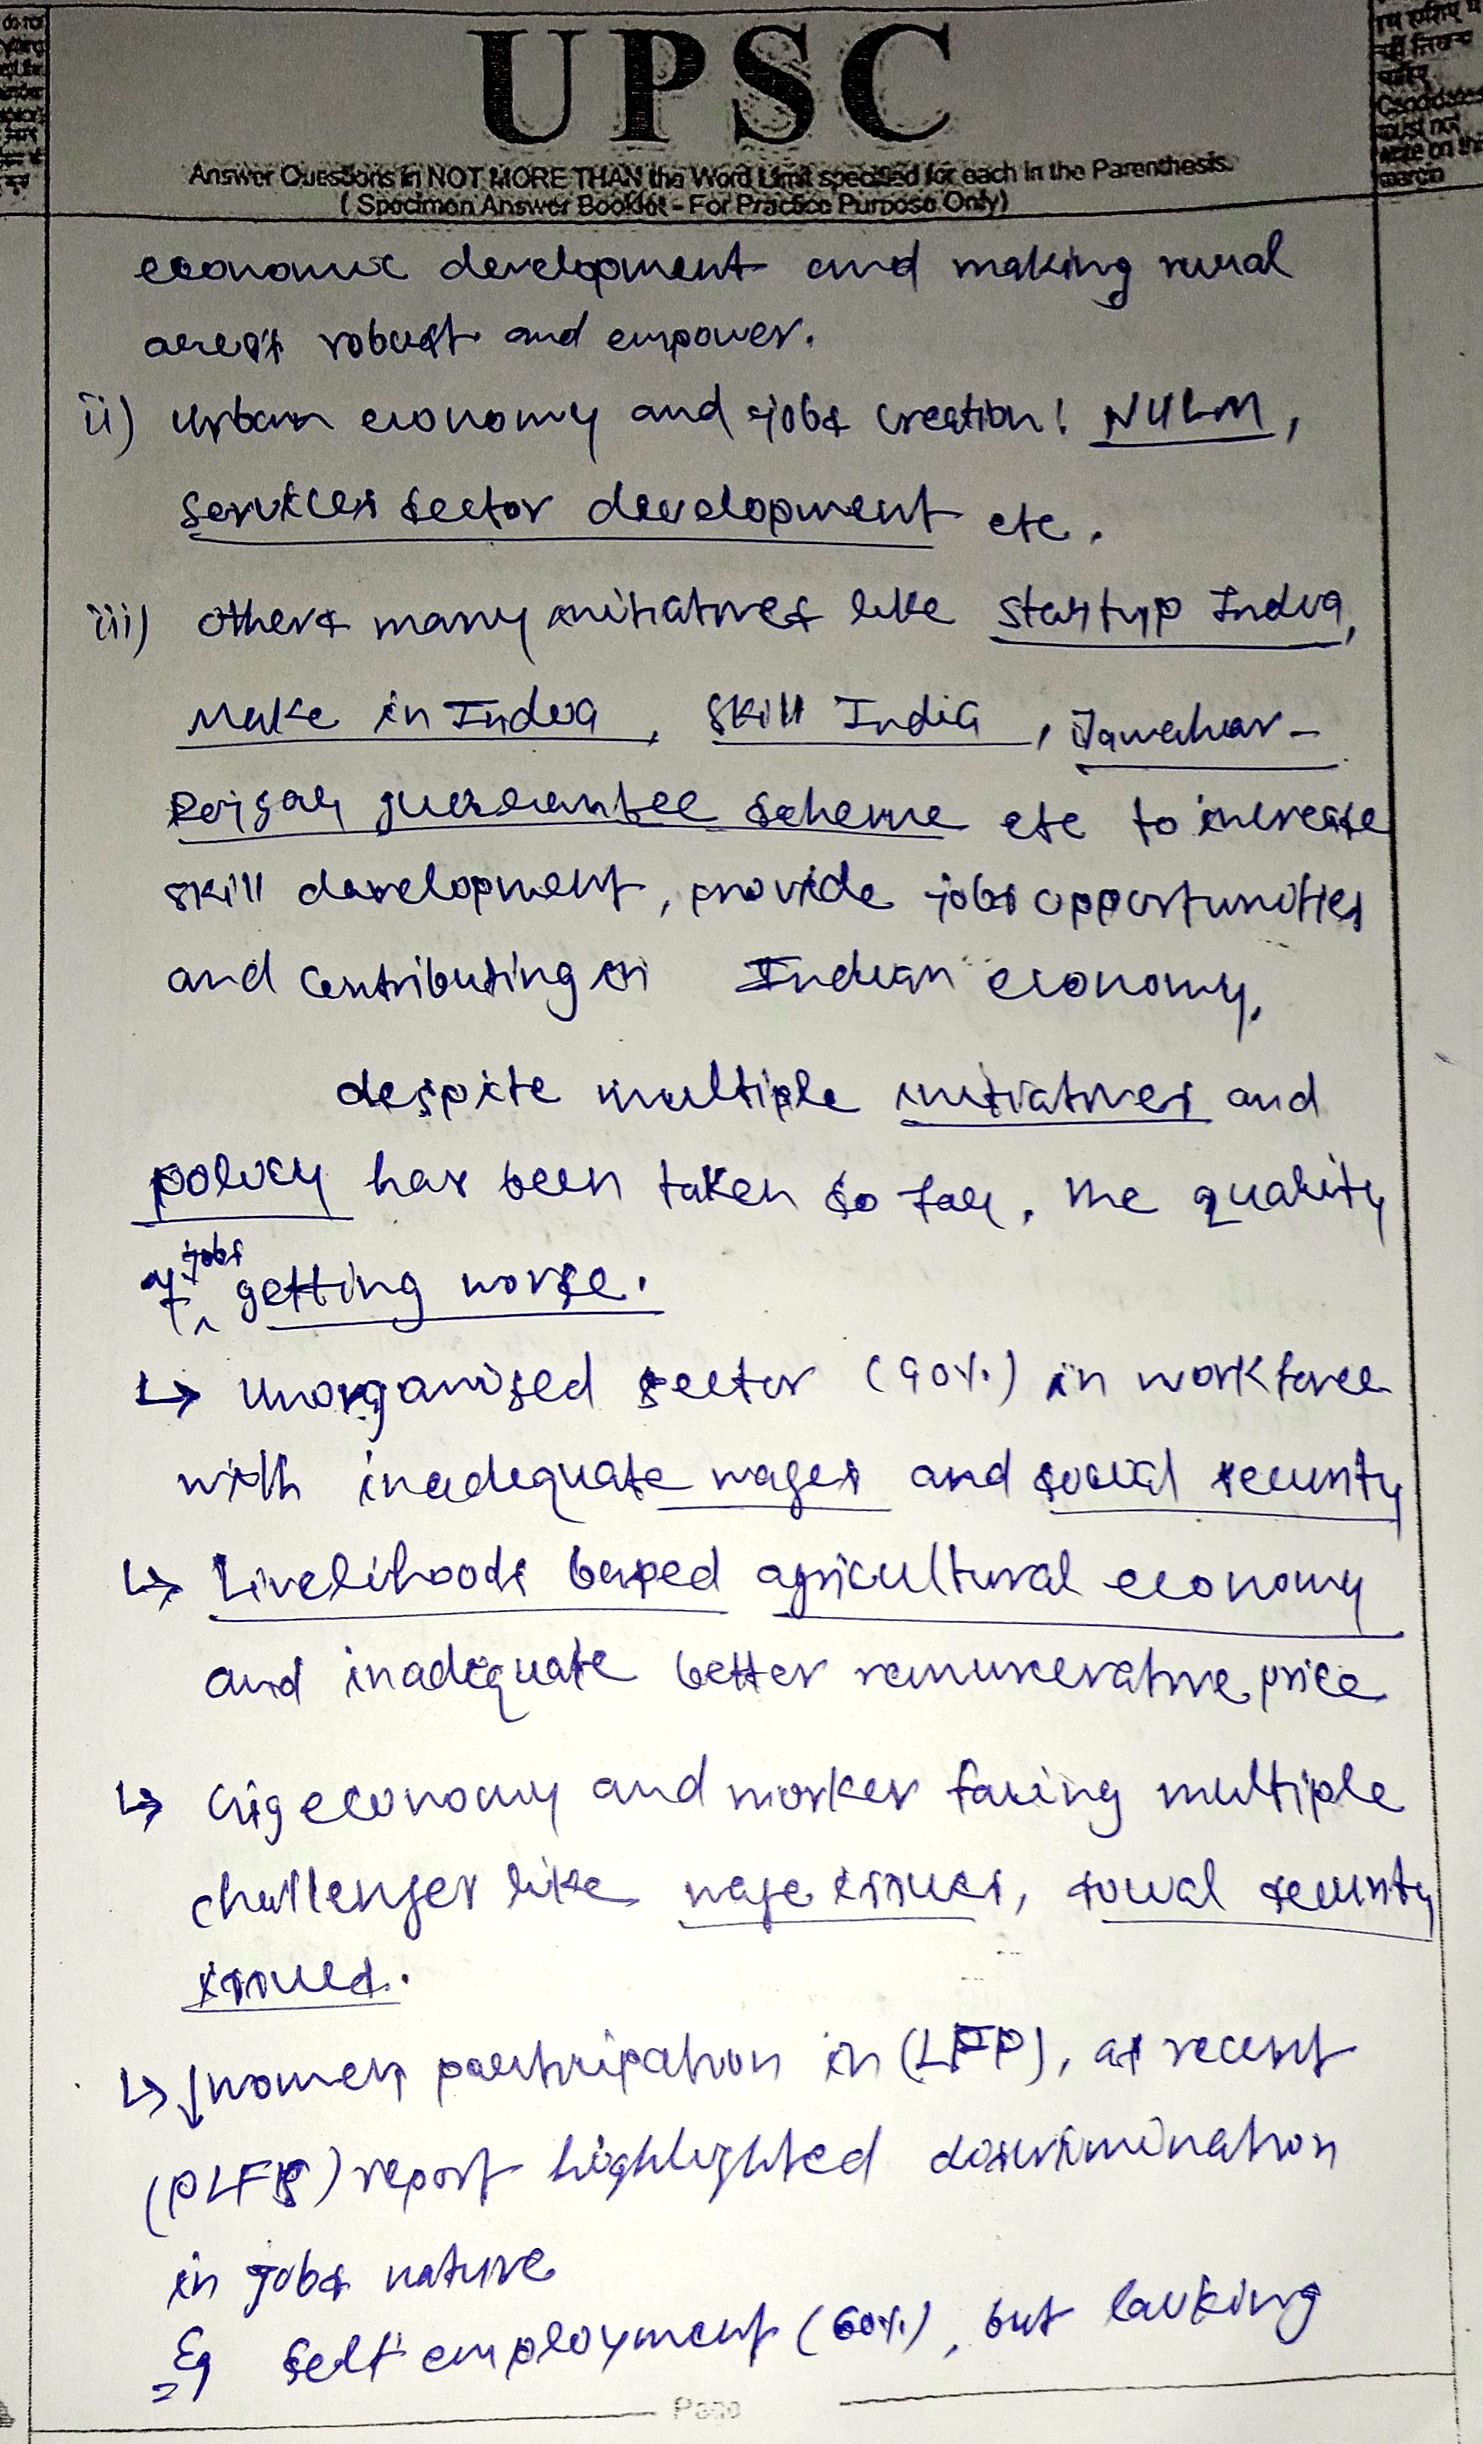 UPSC
Answer Questions in NOT MORE THAN the Word Limit specified for each in the Parenthesis.
( Specimen Answer Booklet - For Practice Purpose Only)
Candidates
must not
write on the
margin
economic development and making rural
areas robust and empower.
ii) Urban economy and jobs creation: NULM,
Services sector development etc.
iii) others many initiatives like Startup India,
Make in India, Skill India, Jawahar-
Rojgar guarantee scheme etc to increase
skill development, provide jobs opportunities
and contributing in Indian economy.
despite multiple initiatives and
policy has been taken so far, the quality
of jobs getting worse.
↳ Unorganised sector (90%) in workforce
with inadequate wages and social security
↳ Livelihoods based agricultural economy
and inadequate better remunerative price
↳ Gig economy and worker facing multiple
challenges like wage issues, social security
issues.
↳ ↓women participation in (LFP), as recent
(PLFS) report highlighted discrimination
in jobs nature
Eg Self employment (60%), but lacking
Page